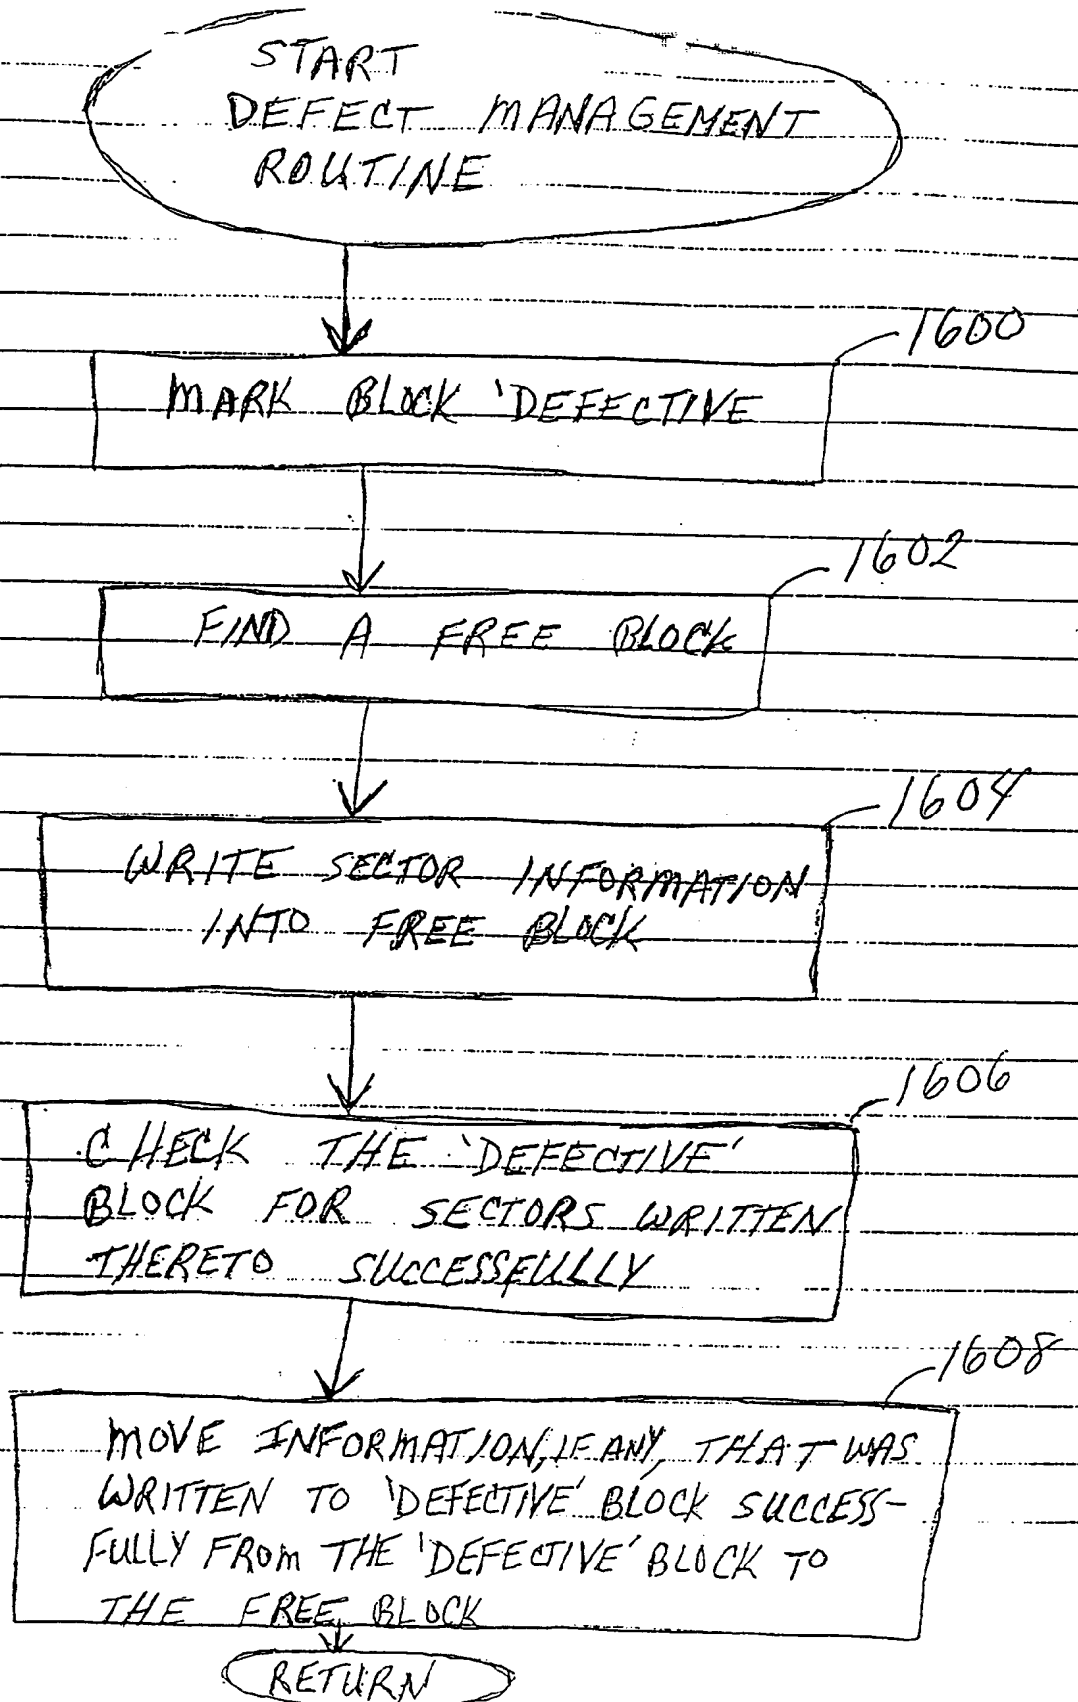 START
DEFECT MANAGEMENT
ROUTINE
1600
MARK BLOCK 'DEFECTIVE
1602
FIND A FREE BLOCK
1604
WRITE SECTOR INFORMATION
INTO FREE BLOCK
1606
CHECK THE 'DEFECTIVE'
BLOCK FOR SECTORS WRITTEN
THERETO SUCCESSFULLY
1608
MOVE INFORMATION, IF ANY, THAT WAS
WRITTEN TO 'DEFECTIVE' BLOCK SUCCESS-
FULLY FROM THE 'DEFECTIVE' BLOCK TO
THE FREE BLOCK
RETURN